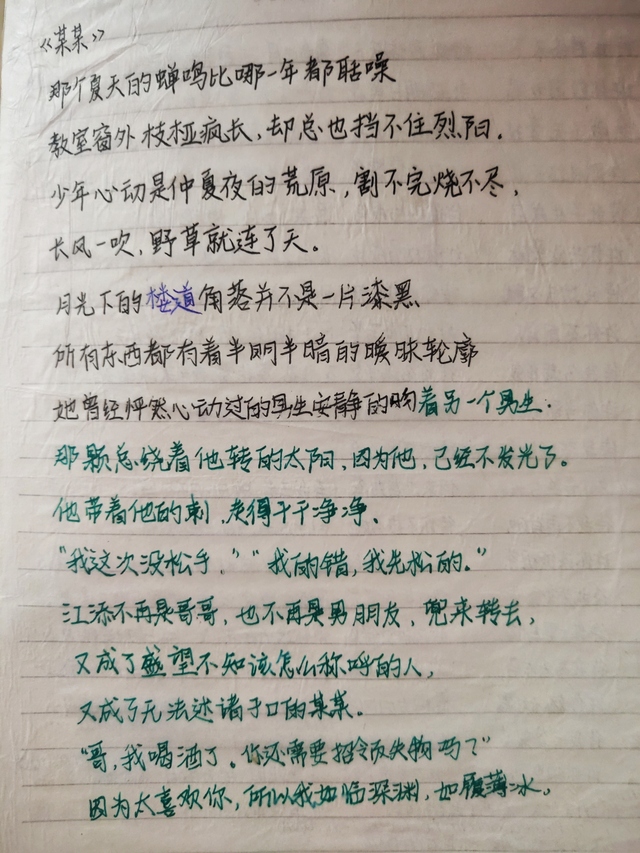 《某某》
那个夏天的蝉鸣比哪一年都聒噪
教室窗外枝桠疯长,却总也挡不住烈阳.
少年心动是仲夏夜的荒原,割不完烧不尽,
长风一吹,野草就连了天。
月光下的楼道角落并不是一片漆黑
所有东西都有着半明半暗的暧昧轮廓
她曾经怦然心动过的男生安静的吻着另一个男生.
那颗总绕着他转的太阳,因为他,已经不发光了。
他带着他的刺,走得干干净净、
"我这次没松手,""我的错,我先松的。"
江添不再是哥哥,也不再是男朋友,兜来转去,
又成了盛望不知该怎么称呼的人,
又成了无法述诸于口的某某。
"哥,我喝酒了。你还需要招领失物吗?"
因为太喜欢你,所以我如临深渊,如履薄冰、